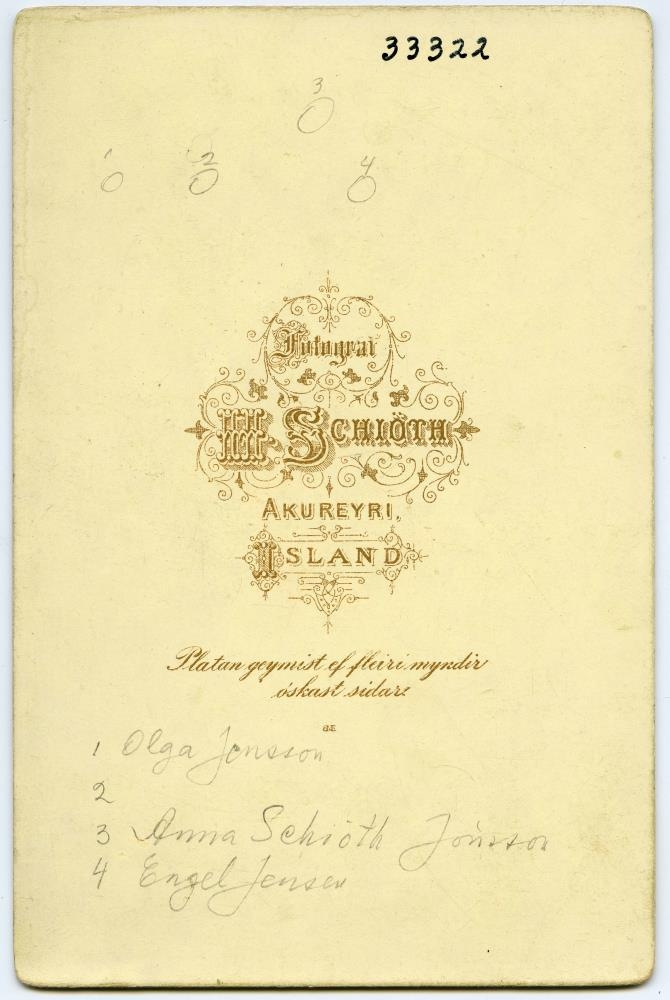 33322
3
1 2 4
Fotograf
H. Schiöth
Akureyri,
Island
Platan geymist ef fleiri myndir
óskast sidar.
1 Olga Jensson
2
3 Anna Schiöth Jónsson
4 Engel Jensen